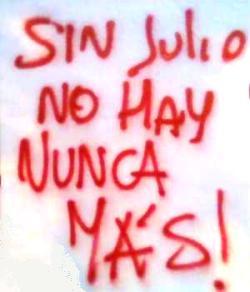 SIN JULIO
NO HAY
NUNCA
MÁS!